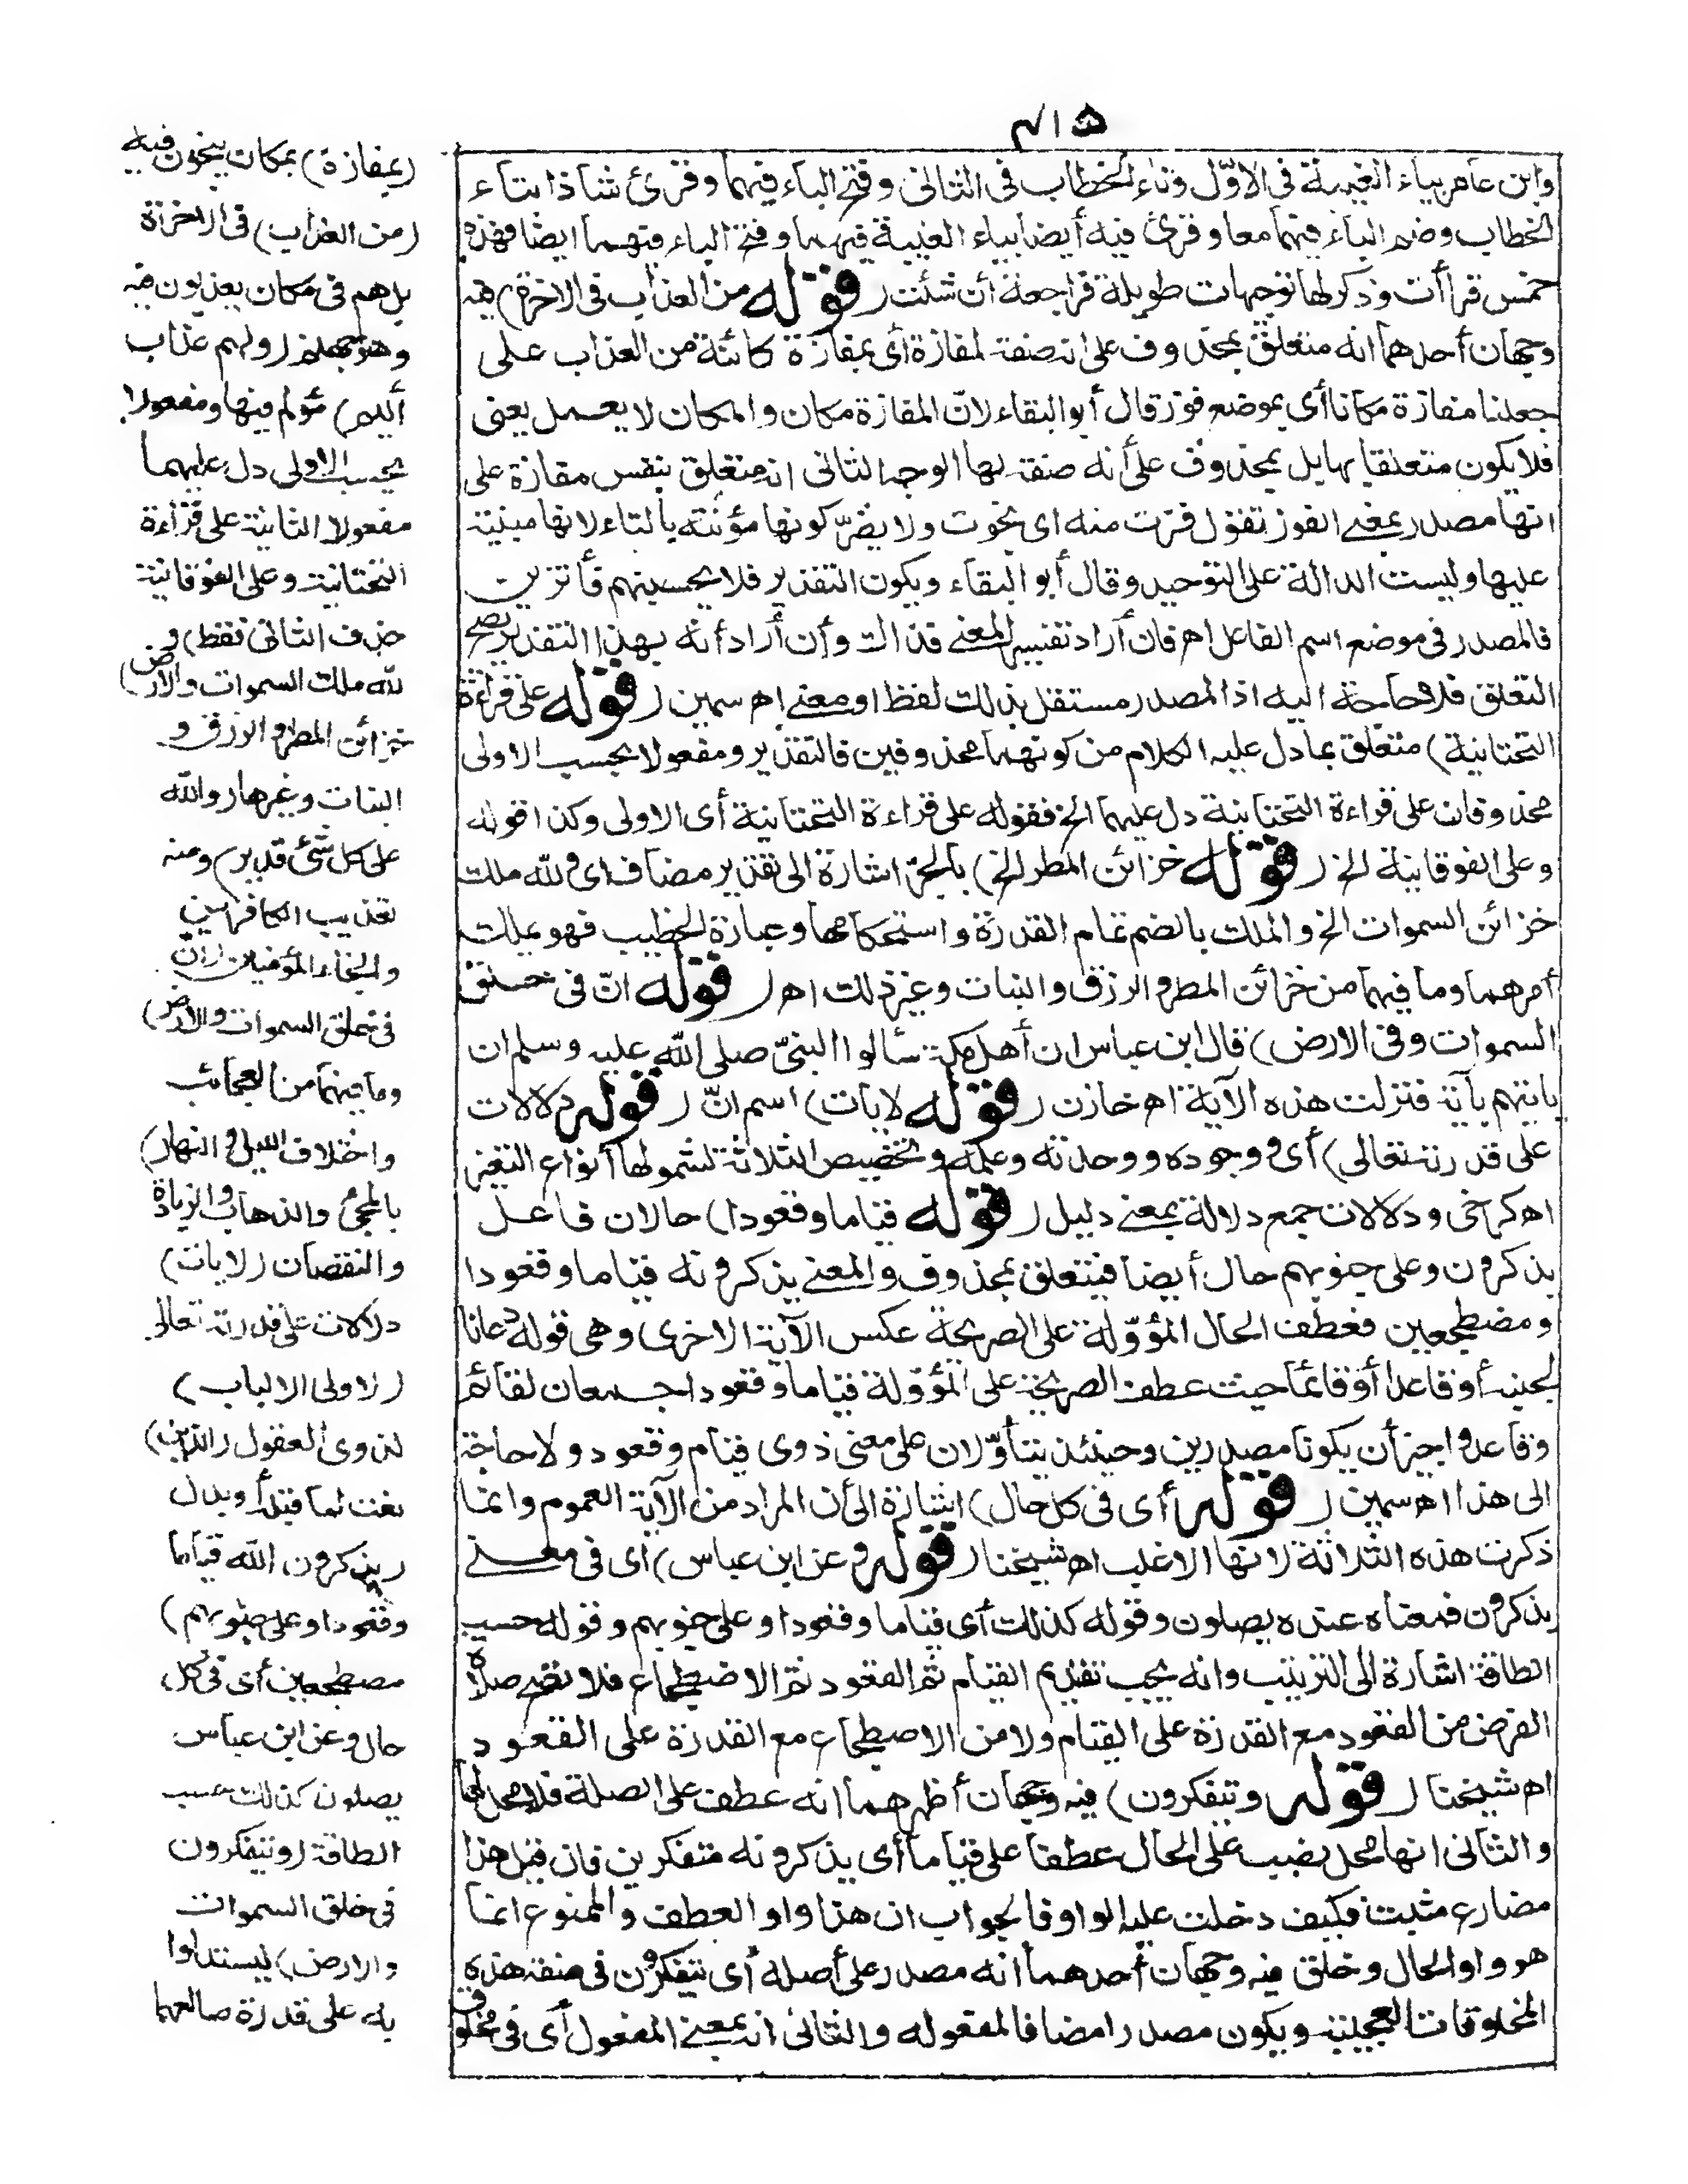 ٤١٥
وابن عامر بياء الغيبة في الاوّل وتاء الخطاب في الثاني وفتح الباء فيهما وقرئ شاذا بتاء
الخطاب وضم الباء فيهما معا وقرئ فيه أيضا بياء الغيبة فيهما وفتح الباء فيهما ايضا فهذه
خمس قراآت وذكر لها توجيهات طويلة فراجعه ان شئت (قوله من العذاب في الاخرة) فيه
وجهان أحدهما انه متعلق بمحذوف على انه صفة لمفازة أى بمفازة كائنة من العذاب على
جعلنا مفازة مكانا أى بموضع فوز قال أبو البقاء لانّ المفازة مكان والمكان لا يعمل يعنى
فلا يكون متعلقا بها بل بمحذوف على أنه صفة لها الوجه الثانى انه متعلق بنفس مفازة على
انها مصدر بمعنى الفوز تقول فزت منه اى نجوت ولا يضرّ كونها مؤنثة بالتاء لانها مبنية
عليها وليست الدالة على التوحيد وقال أبو البقاء ويكون التقدير فلا يحسبنهم فائزين
فالمصدر في موضع اسم الفاعل اه فان أراد تفسير المعنى فذاك وأن أراد أنه بهذا التقدير يصح
التعلق فلا حاجة اليه اذ المصدر مستقل بذلك لفظا ومعنى اه سمين (قوله على قراءة
التحتانية) متعلق بما دل عليه الكلام من كونهما محذوفين فالتقدير ومفعولا يحسب الاولى
محذوفان على قراءة التحتانية دل عليهما الخ فقوله على قراءة التحتانية أى الاولى وكذا قوله
وعلى الفوقانية الخ (قوله خزائن المطر الخ) بالجرّ اشارة الى تقدير مضاف اى ولله ملك
خزائن السموات الخ والملك بالضم تمام القدرة واستحكامها وعبارة الخطيب فهو يملك
أمرهما وما فيهما من خزائن المطر والرزق والنبات وغير ذلك اه (قوله انّ في خلق
السموات وفي الارض) قال ابن عباس ان أهل مكة سألوا النبىّ صلى الله عليه وسلم ان
ياتيهم بآية فنزلت هذه الآية اه خازن (قوله لايات) اسم انّ (قوله دلالات
على قدرته تعالى) أى ووجوده ووحدته وعلمه وتخصيص الثلاثة لشمولها أنواع التغير
اه كرخى ودلالات جمع دلالة بمعنى دليل (قوله قياما وقعودا) حالان من فاعل
يذكرون وعلى جنوبهم حال أيضا فيتعلق بمحذوف والمعنى يذكرونه قياما وقعودا
ومضطجعين فعطف الحال المؤوّلة على الصريحة عكس الآية الاخرى وهى قوله دعانا
لجنبه أو قاعدا أو قائما حيث عطف الصريحة على المؤوّلة قياما وقعودا جمعان لقائم
وقاعد واجيز أن يكونا مصدرين وحينئذ يتأوّلان على معنى ذوى قيام وقعود ولا حاجة
الى هذا اه سمين (قوله أى في كل حال) اشارة الى أن المراد من الآية العموم وانما
ذكرت هذه الثلاثة لانها الاغلب اه شيخنا (قوله وعن ابن عباس) اى في معنى
يذكرون فمعناه عنده يصلون وقوله كذلك أى قياما وقعودا وعلى جنوبهم وقوله حسب
الطاقة اشارة الى الترتيب وانه يجب تقديم القيام ثم القعود ثم الاضطجاع فلا تصح صلاة
الفرض من القعود مع القدرة على القيام ولا من الاضطجاع مع القدرة على القعود
اه شيخنا (قوله ويتفكرون) فيه وجهان أظهرهما انه عطف على الصلة فلا محل لها
والثانى انها محل نصب على الحال عطفا على قياما أى يذكرونه متفكرين فان قيل هذا
مضارع مثبت فكيف دخلت عليه الواو فالجواب ان هذا واو العطف والممنوع انما
هو واو الحال وخلق فيه وجهان أحدهما انه مصدر على أصله أى يتفكرون في صفة هذه
المخلوقات العجيبة ويكون مصدرا مضافا لمفعوله والثانى انه بمعنى المفعول أى في مخلوق
(بمفازة) بمكان ينجون فيه
(من العذاب) في الاخرة
بل هم في مكان يعذبون فيه
وهو جهنم (ولهم عذاب
أليم) مؤلم فيها ومفعولا
يحسب الاولى دل عليهما
مفعولا الثانية على قراءة
التحتانية وعلى الفوقانية
حذف الثانى فقط (و
لله ملك السموات والارض)
خزائن المطر والرزق و
النبات وغيرها (والله
على كل شئ قدير) ومنه
تعذيب الكافرين
وانجاء المؤمنين (ان
في خلق السموات والارض)
وما فيهما من العجائب
واختلاف الليل والنهار)
بالمجئ والذهاب والزيادة
والنقصان (لايات)
دلالات على قدرته تعالى
(لاولى الالباب)
لذوى العقول (الذين)
نعت لما قبله أو بدل
(يذكرون الله قياما
وقعودا وعلى جنوبهم)
مضطجعين أى في كل
حال وعن ابن عباس
يصلون كذلك حسب
الطاقة (ويتفكرون
في خلق السموات
والارض) ليستدلوا
به على قدرة صانعهما